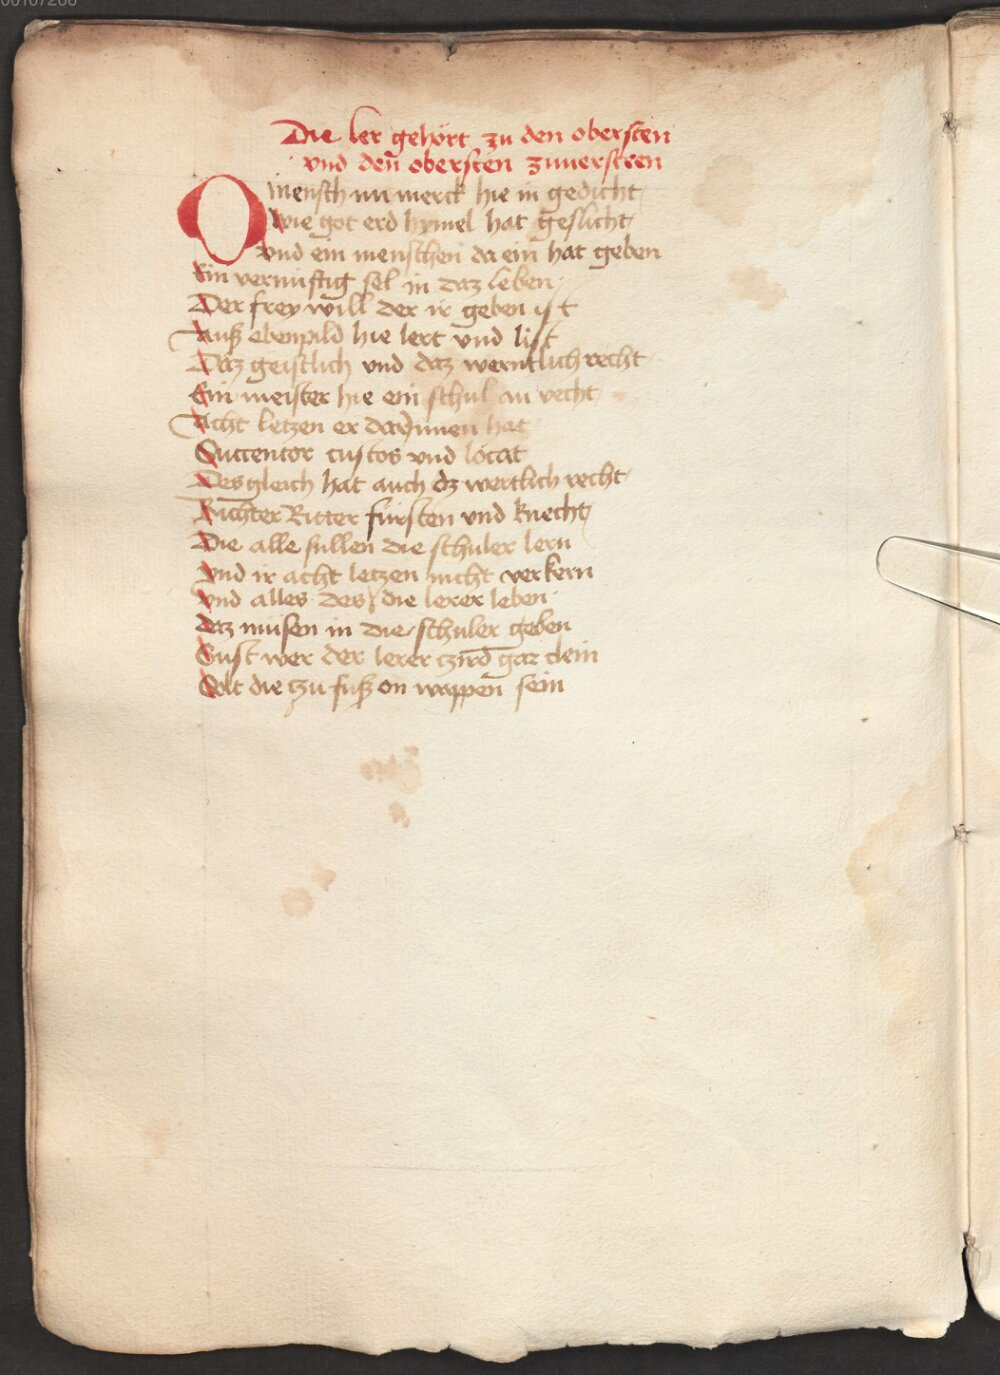 00107266
Die ler gehört zu den obersten
vnd den̄ obersten zuuersteen
O mensch nu merck hie in gedicht
Wie got erd hymel hat geslicht
Vnd ein menschen da ein hat geben
Ein vernuftig sel in daz leben
Der frey will der ir geben ist
Auß ebenpild hie lert vnd list
Daz geistlich vnd daz werntlich recht
Ein meister hie ein schul an vecht
Acht letzen er darjnnen hat
Succentor custos vnd locat
Desgleich hat auch dz wertlich recht
Richter Ritter fursten vnd knecht
Die alle sullen die schuler lern
Vnd ir acht letzen nicht verkern
Vnd alles des die lerer leben
Daz müsen in die schuler geben
Sust wer der lerer czird gar clein
Solt die czu fuß on wappen sein